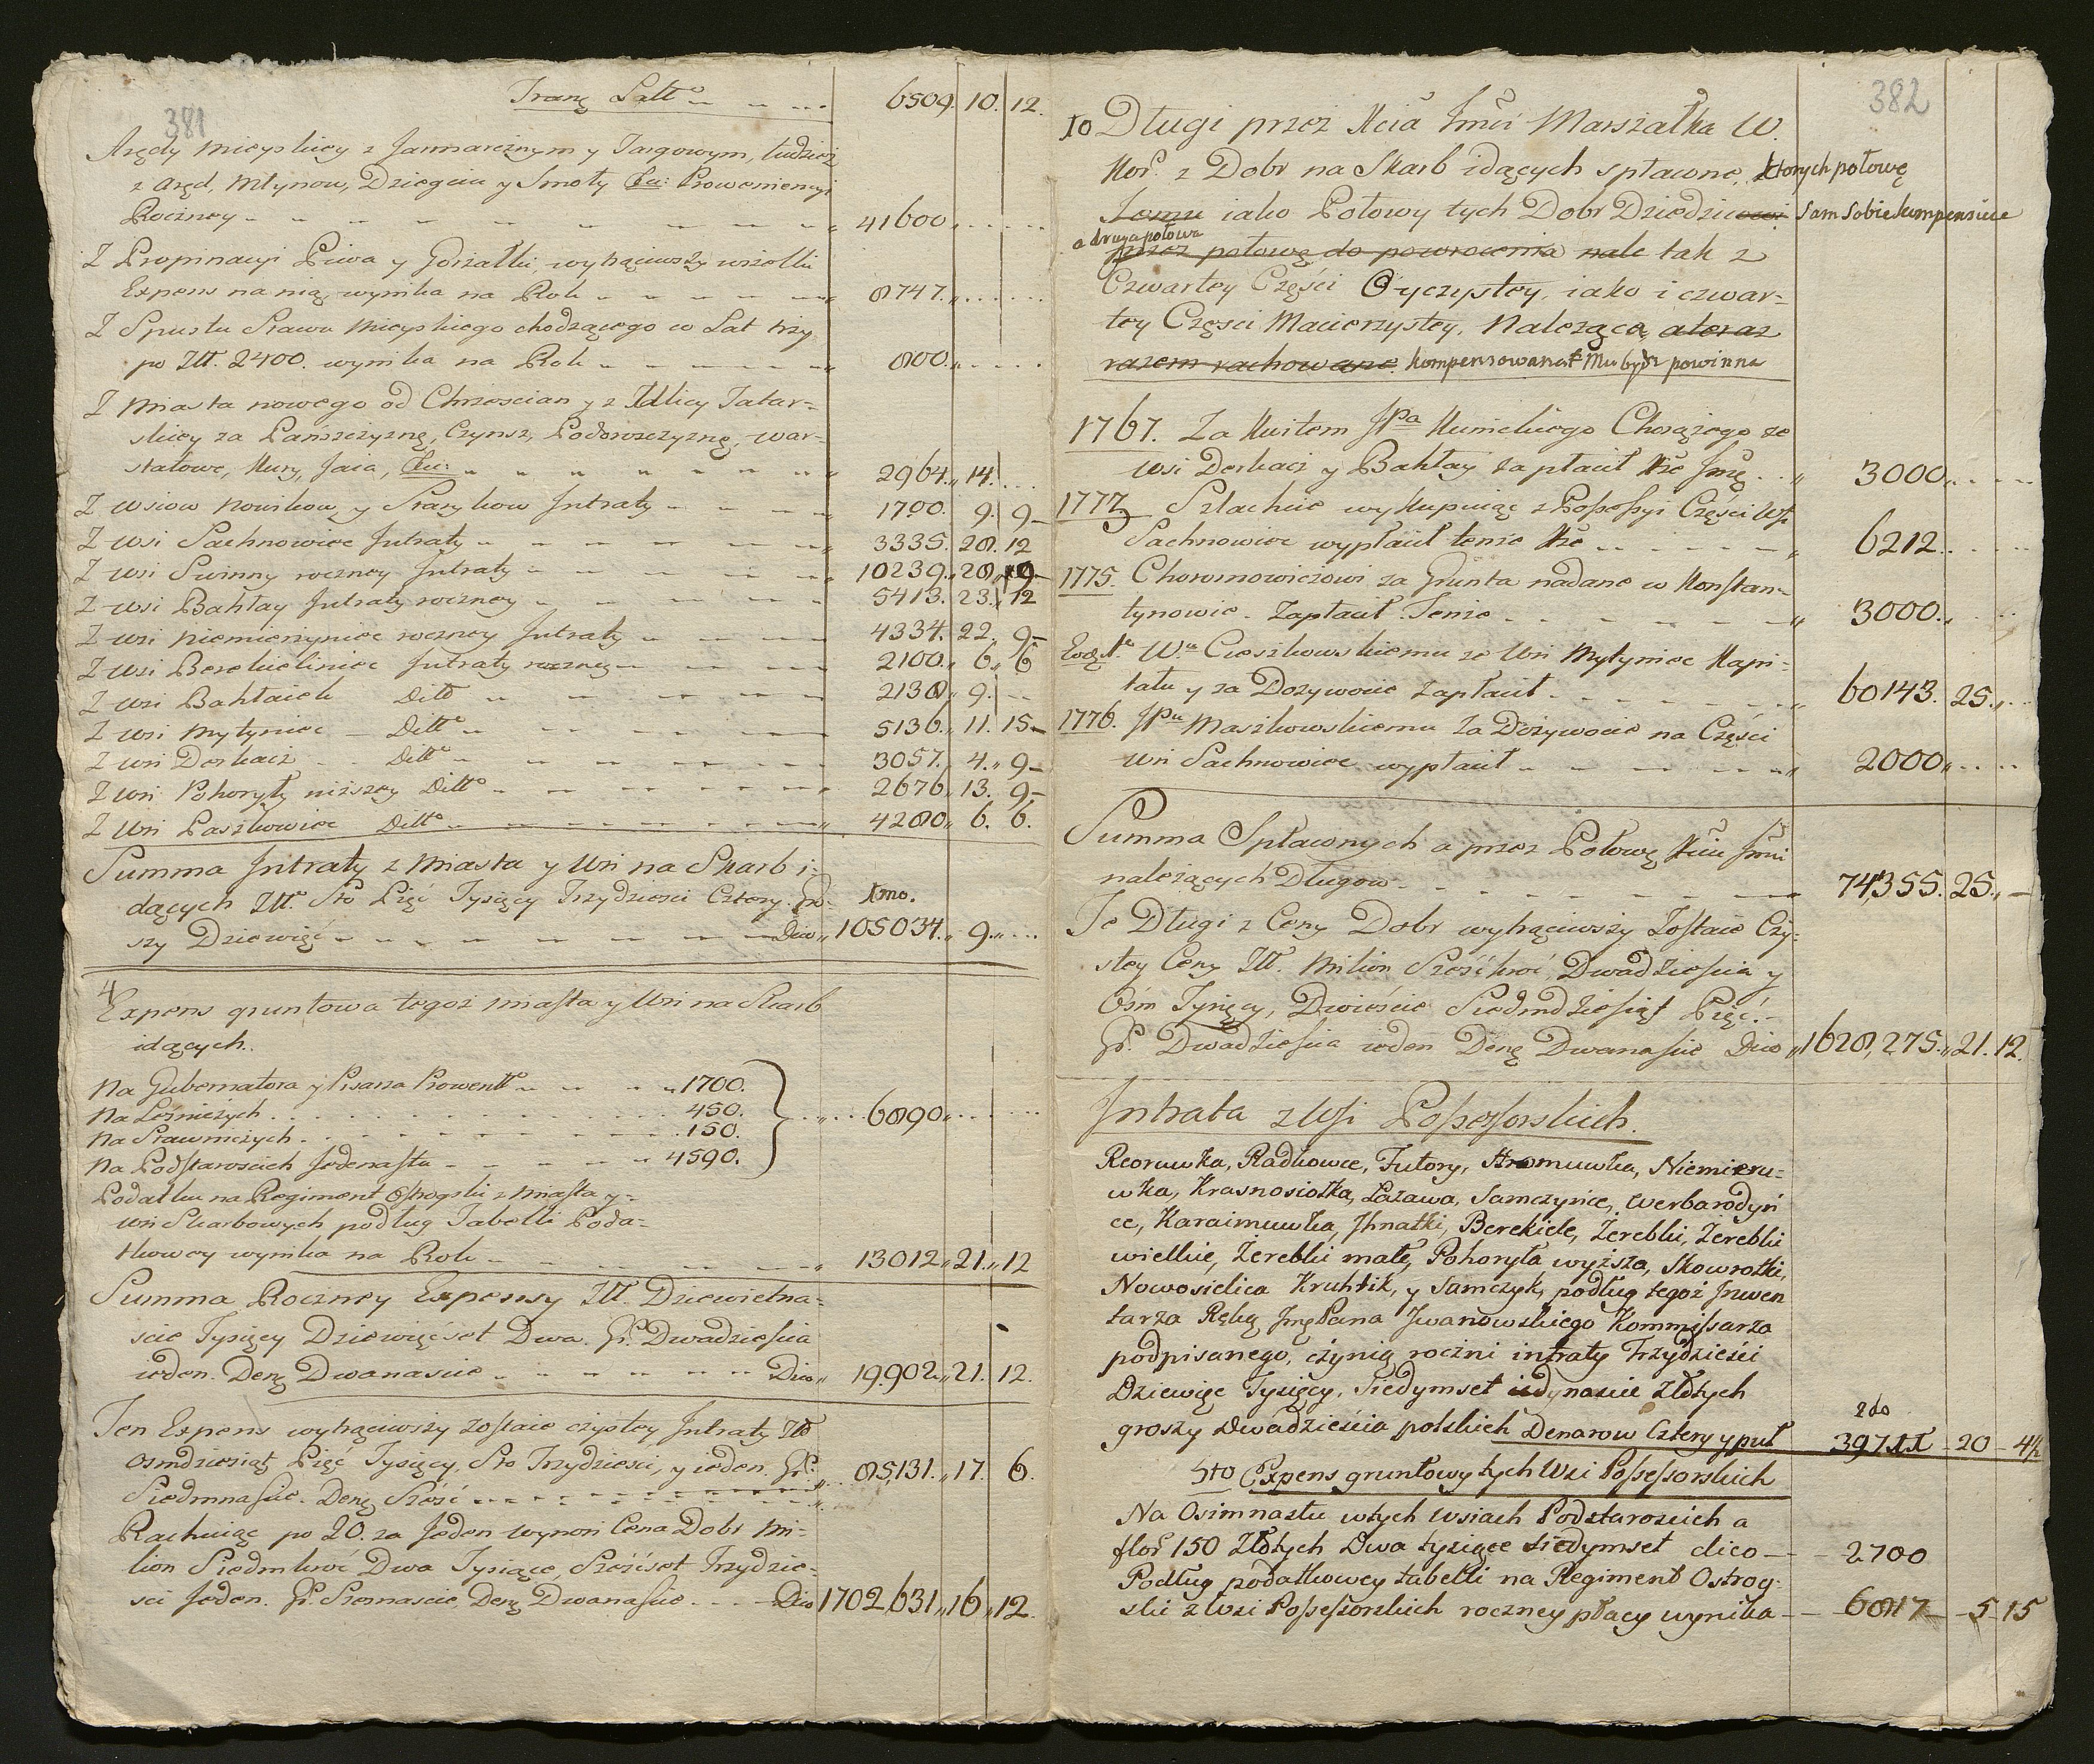 381
Trans Latt 6509. 10. 12.
Arędy Mieyskiey z Jarmarcznym y Targowym, tudzież
z Aręd, Młynow, Dziegciu y Smoły Proweniencyi
Roczney 41600
Z Propinacyi Piwa y Gorzałki, wytrąciwszy wszelki
Expens na nią, wynika na Rok 8747.
Z Spustu Stawu Mieyskiego chodzącego co Lat trzy
po Złł. 2400. wynika na Rok 800.
Z Miasta nowego od Chrzescian y z Ulicy Tatar=
skiey za Pańszczyznę, Czynsz, Podorożczyznę, War=
stałowe, Kury, Jaia, 2964. 14.
Z Wsiow Nowikow, y Starykow Intraty 1700. 9. 9
Z Wsi Sachnowiec Intraty 3335. 28. 12
Z Wsi Swinny roczney Intraty 10239. 28. 9
Z Wsi Bahłay Intraty roczney 5413. 23. 12
Z Wsi Niemierzyniec roczney Intraty 4334. 22. 9
Z Wsi Berekieliniec Intraty roczney 2100. 6. 6
Z Wsi Bahłaiek Ditto 2138. 9.
Z Wsi Mytyniec Ditto 5136. 11. 15
Z Wsi Derkacz Ditto 3057. 4. 9
Z Wsi Pohoryły niższey Ditto 2676. 13. 9
Z Wsi Paszkowiec Ditto 4280. 6. 6.
Summa Intraty z Miasta y Wsi na Skarb i=
dących Złł. Sto Pięć Tysięcy Trzydziesci Cztery. gro= 1mo.
szy Dziewięć Dico 105034. 9.
4 Expens gruntowa tegoż Miasta y Wsi na Skarb
idących.
Na Gubernatora y Pisarza Prowentt 1700.
Na Lesniczych 450. 6890
Na Stawniczych 150.
Na Podstaroscich Jedenastu 4590.
Podatku na Regiment Ostrogski z Miasta y=
Wsi Skarbowych podług Tabelli Poda=
tkowey wynika na Rok 13012. 21. 12
Summa Roczney Expensy Złł. Dziewietna=
scie Tysięcy Dziewięćset Dwa. Gr. Dwadziescia
ieden. Denr Dwanascie Dico 19902. 21. 12.
Ten Expens wytrąciwszy zostaie czystey Intraty Złł
Osmdziesiąt Pięć Tysięcy, Sto Trzydziesci, y ieden. Gr. 85,131. 17. 6.
Siedmnascie. Denr Sześć
Rachuiąc po 20. za Jeden wynosi Cena Dobr Mi=
lion Siedmkroć Dwa Tysiące, Sześćset Trzydzie=
sci Jeden. Gr. Szesnascie, Denr Dwanascie Dico 1702,631. 16. 12.
382
10 Długi przez Xcia Jmci Marszałka W.
Kor. z Dobr na Skarb idących spłacone, ktorych połowę
Temu iako Połowy tych Dobr Dziedzicowi sam Sobie kompensuie
a druga połowa
przez połowę do powrocenia nale tak z
Czwartey Części Oyczystey, iako i czwar=
tey Części Macierzystey, Należąca, a teraz
razem rachowane. kompensowana Mu bydź powinna
1767. Za Kwitem JPa Kunickiego Chorążego ze
Wsi Derkacz y Bahłay zapłacił Xże Jmć 3000
1777 Szlachcie wykupuiąc z Possessyi Części Wsi
Sachnowiec wypłacił tenże Xże 6212.
1775. Choromowiczowi za Grunta nadane w Konstan=
tynowie. Zapłacił Tenże 3000.
Eodem Ao Wu Cieszkowskiemu ze Wsi Mytyniec Kapi=
tału y za Dożywocie zapłacił 60143. 25.
1776. JPu Maszkowskiemu Za Dożywocie na Części
Wsi Sachnowiec wypłacił 2000
Summa Spłaconych a przez Połowę Xciu Jmci
należących Długow 74,355. 25.
Te Długi z Ceny Dobr wytrąciwszy Zostaie Czy=
stey Ceny Złł. Milion Sześćkroć Dwadziescia y
Ośm Tysięcy, Dwieście Siedmdziesiąt Pięć.
Gr. Dwadziescia ieden Denr Dwanascie Dico 1628,275. 21. 12.
Intrata z Wsi Possessorskich.
Reoruwka, Radkowce, Futory, Hromuwka, Niemieru=
wka, Krasnosiołka, Łazawa, Samczyńce, Werbarodyń
ce, Karaimuwka, Jhnatki, Berekiele, Żerebki, Żerebki
wielkie, Żerebki małe, Pohoryła wyższa, Skowrotki,
Nowosielica Kruhlik, y Samczyk, podług tegoż Inwen
tarza Ręką Jmę Pana Jwanowskiego Kommissarza
podpisanego, czynią roczni intraty Trzydzieści
Dziewięc Tysięcy, Siedymset iedynascie złotych
groszy Dwadzieścia polskich Denarow Cztery y puł 2do 39711 - 20 - 4½
5to Expens gruntowy tych Wsi Possessorskich
Na Osimnastu wtych Wsiach Podstaroscich a
flor 150 Złotych Dwa tysiące siedymset dico 2700
Podług podatkowey tabelli na Regiment Ostrog=
ski z Wsi Possessorskich roczney płacy wynika 6817 - 5 - 15